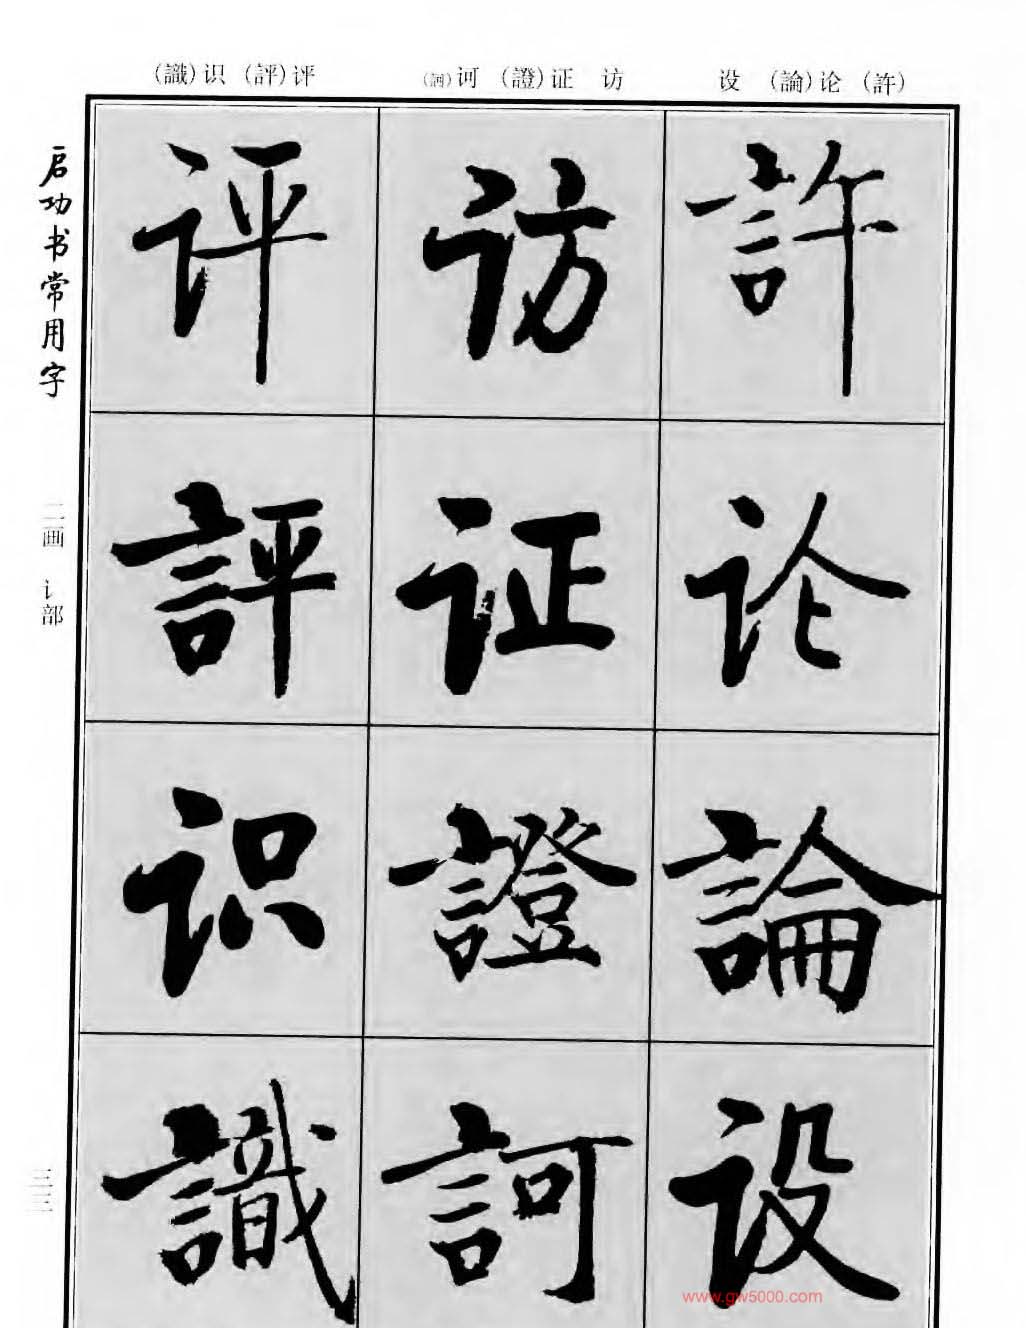 (識)识 (評)评
(訶)诃 (證)证 访
设 (論)论 (許)
启功书常用字
二画 讠部
三三
评 访 許
評 证 论
识 證 論
識 訶 设
www.gw5000.com